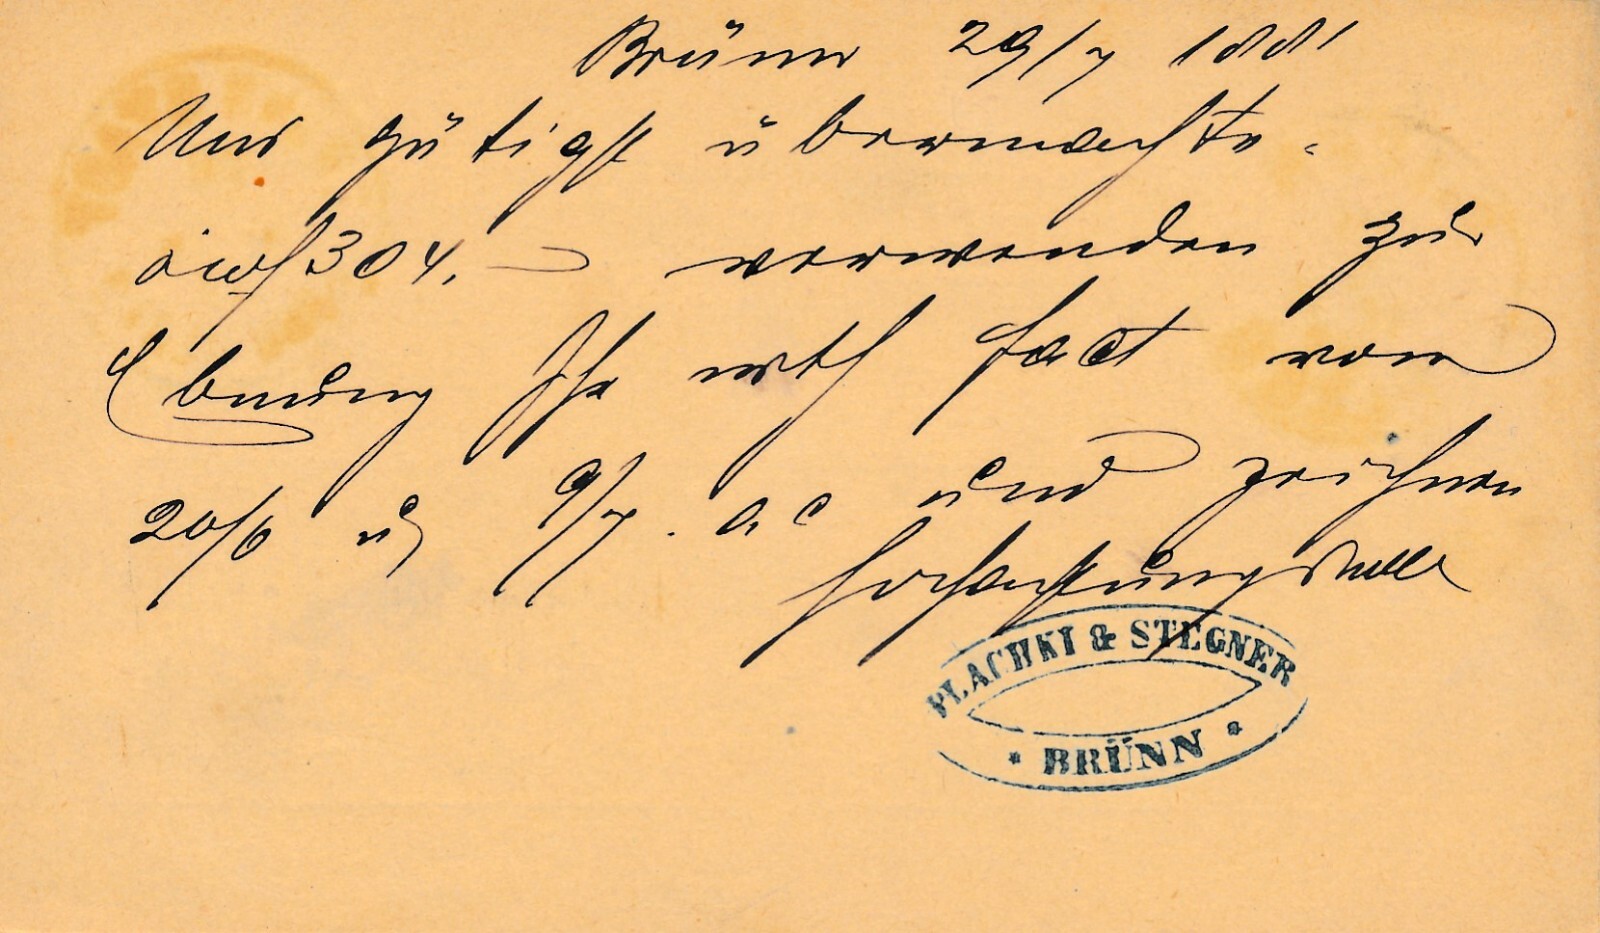 Brünn 29/7 1881
Uns gütigst übermachte
öwf 304.— verwenden zur
Ebnung Ihr wth fact vom
20/6 u 9/7. ac und zeichnen
hochachtungsvoll
PLACHKI & STEGNER
* BRÜNN *